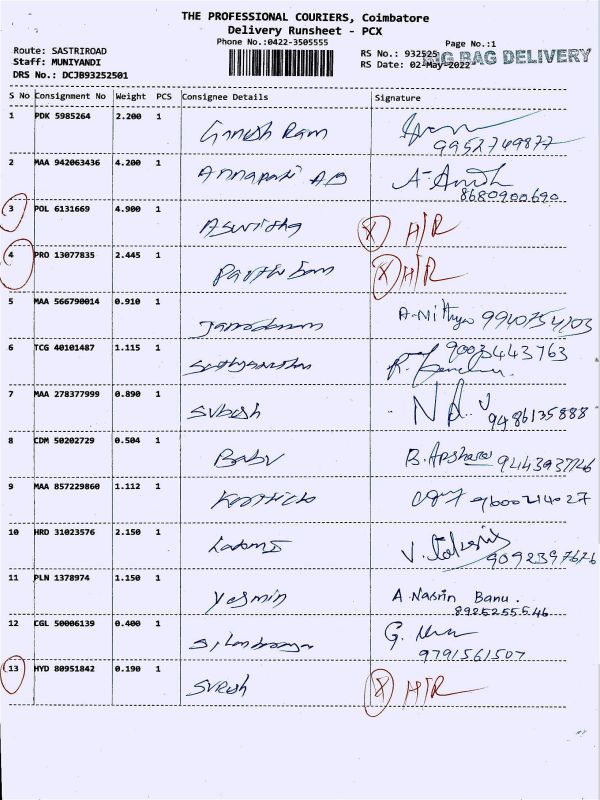 THE PROFESSIONAL COURIERS, Coimbatore
Delivery Runsheet - PCX
Phone No.:0422-3505555
Page No.:1
Route: SASTRIROAD
RS No.: 932525
BIG BAG DELIVERY
Staff: MUNIYANDI
RS Date: 02-May-2022
DRS No.: DCJB93252501
S No Consignment No Weight PCS Consignee Details Signature
1 PDK 5985264 2.200 1 Ganesh Ram
9952749877
2 MAA 942063436 4.200 1
8680900690
3 POL 6131669 4.900 1 X H/R
4 PRO 13077835 2.445 1 X H/R
5 MAA 566790014 0.910 1 A.Nithya 9940754703
6 TCG 40101487 1.115 1 9003443763
7 MAA 278377999 0.890 1 Subash
9486135888
8 CDM 50202729 0.504 1 Babu B.Apshara 9443937746
9 MAA 857229860 1.112 1 Karthick 9600214027
10 HRD 31023576 2.150 1
9092397676
11 PLN 1378974 1.150 1 Yesmin A Nasrin Banu.
8925255546
12 CGL 50006139 0.400 1
9791561507
13 HYD 80951842 0.190 1 Suresh X H/R